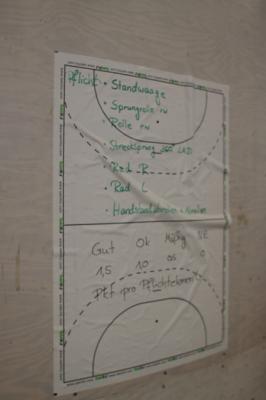 Pflicht: • Standwaage
• Sprungrolle vw
Rolle rw
• Strecksprung 360° LRD
• Rad R
• Rad L
• Handstand
Gut Ok Mäßig NE
1,5 1,0 0,5 0
Pkt pro Pflichtelement